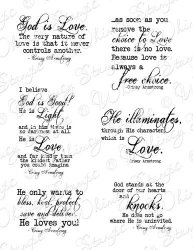 God is Love.
The very nature of
love is that it never
controls another.
Cozy Armstrong
I believe
God is Good!
He is
Light
and in him there is
no darkness at all.
He is
Love
and far kinder than
the kindest Father
you could imagine.
Cozy Armstrong
He only wants to
bless, heal, protect,
save and deliver.
He loves you!
Cozy Armstrong
...as soon as you
remove the
choice to Love
there is no love.
Because love is
always a
free choice.
Armstrong
He illuminates,
through His character
which is
Love.
Armstrong
God stands at the
door of our hearts
and
knocks.
He does not go
where He is uninvited.
Armstrong